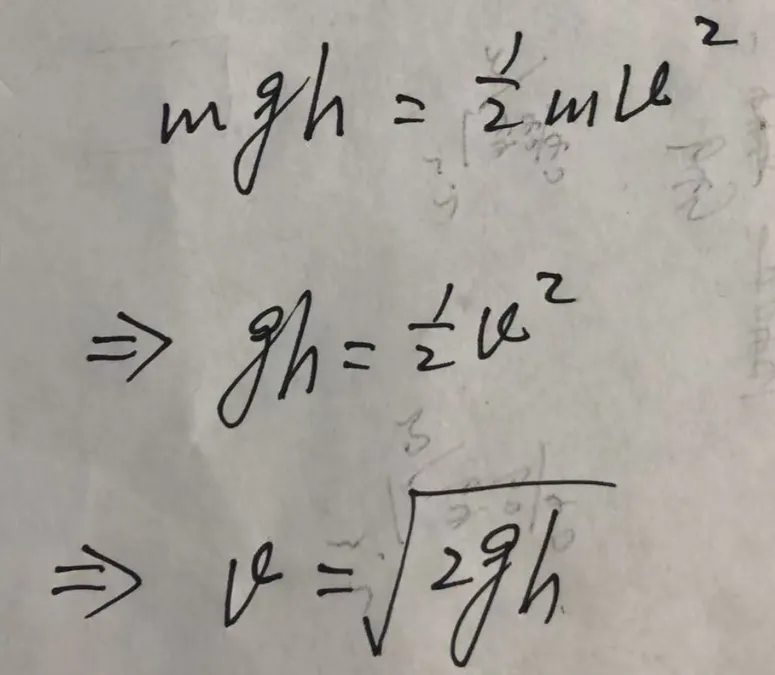 mgh = ½mv²
⇒ gh = ½v²
⇒ v = √(2gh)